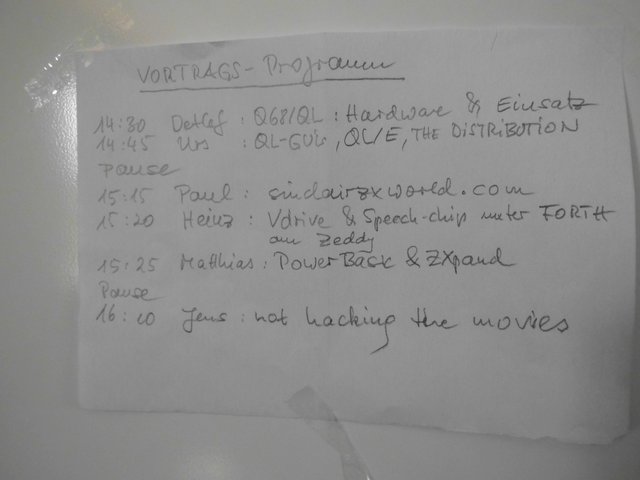 VORTRAGS-Programm
14:30 Detlef : Q68/QL : Hardware & Einsatz
14:45 Urs : QL-GUIs, QL/E, THE DISTRIBUTION
Pause
15:15 Paul : sinclairzxworld.com
15:20 Heinz : Vdrive & Speech-chip unter FORTH
am Zeddy
15:25 Matthias : PowerBasic & ZXpand
Pause
16:10 Jens : not hacking the movies